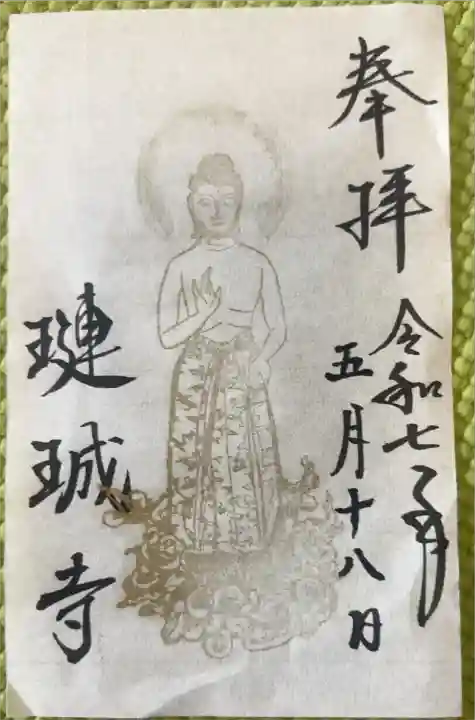 奉拝
令和七年
五月十八日
璉珹寺